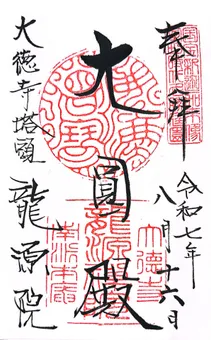 奉拝
令和七年
八月十六日
大圓殿
大徳寺塔頭
龍源院